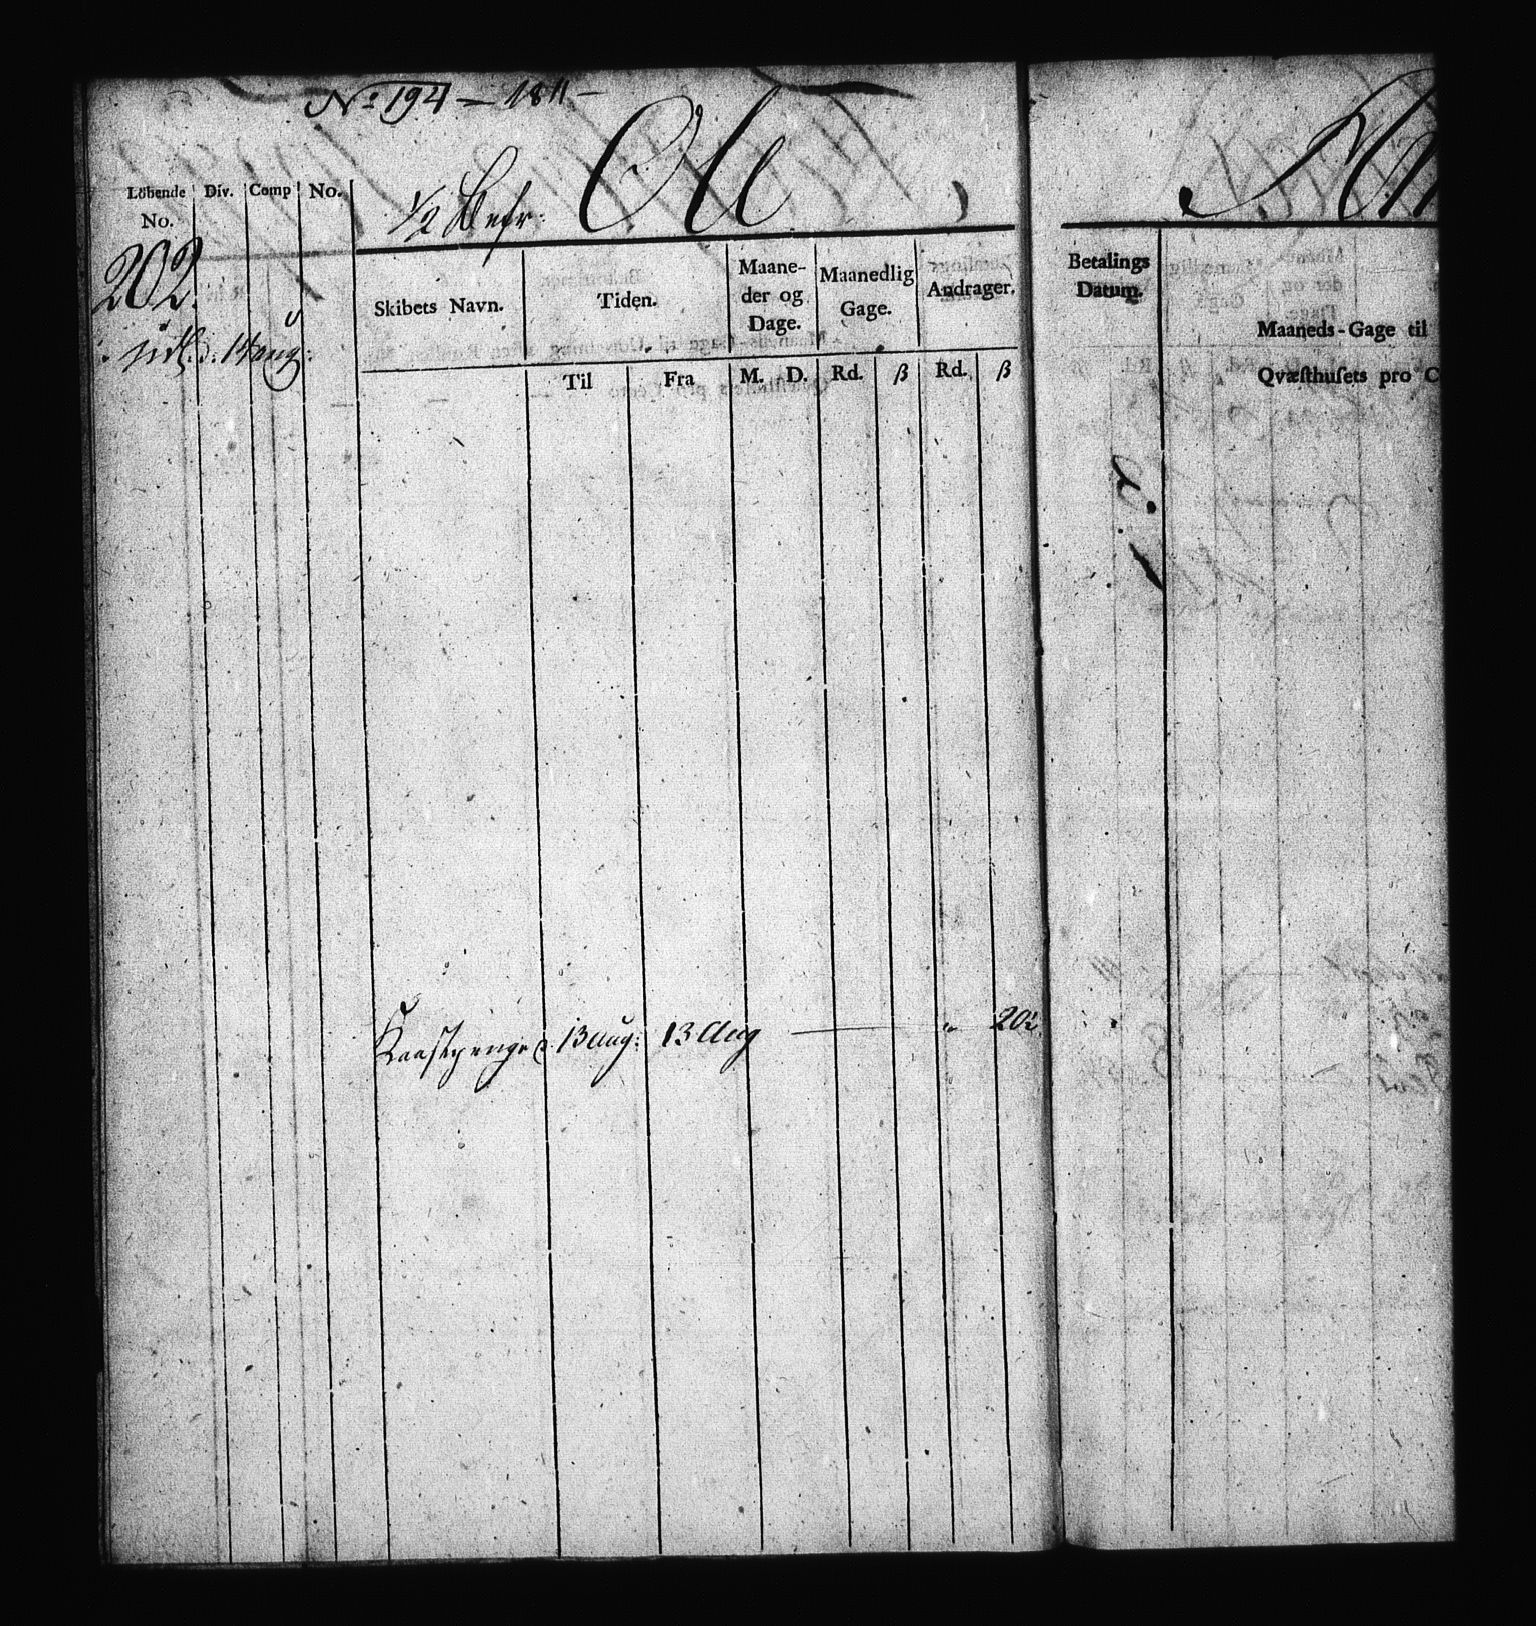 No 194 - 1811 -
1/2 Befr: Ole
Löbende Div. Comp No.
No.
202.
d: 14 aug:
Skibets Navn. Tiden. Maane- Maanedlig Andrager.
der og Gage.
Dage.
Til Fra M. D. Rd. ß Rd. ß
Kaastpenge d. 13 Aug: 13 Aug — " 20
Betalings
Datum.
Maaneds-Gage til
Qvæsthusets pro C